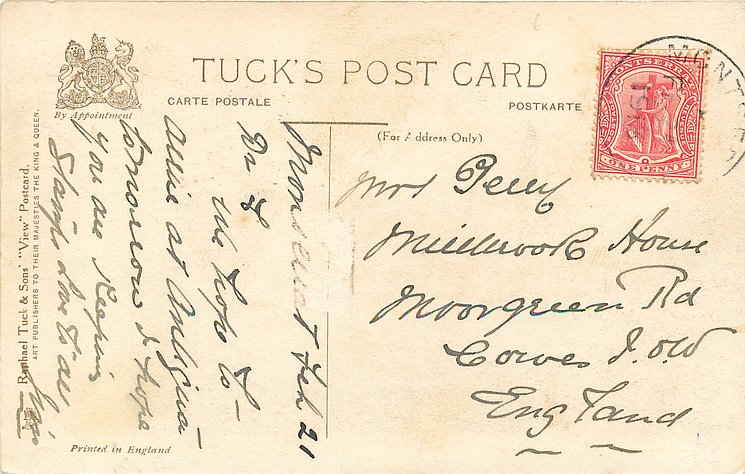 TUCK'S POST CARD
CARTE POSTALE
POSTKARTE
By Appointment
(For Address Only)
MONTSERRAT
POSTAGE
POSTAGE
ONE PENNY
MONTSE
Mrs Perry
Millbrook House
Moorgreen Rd
Cowes I.O.W
England
Montserrat Feb 21
Dr & I
We hope to
at Antigua
tomorrow & hope
you are keeping
Stamps Love to all
Raphael Tuck & Sons' "View" Postcard.
ART PUBLISHERS TO THEIR MAJESTIES THE KING & QUEEN.
Printed in England